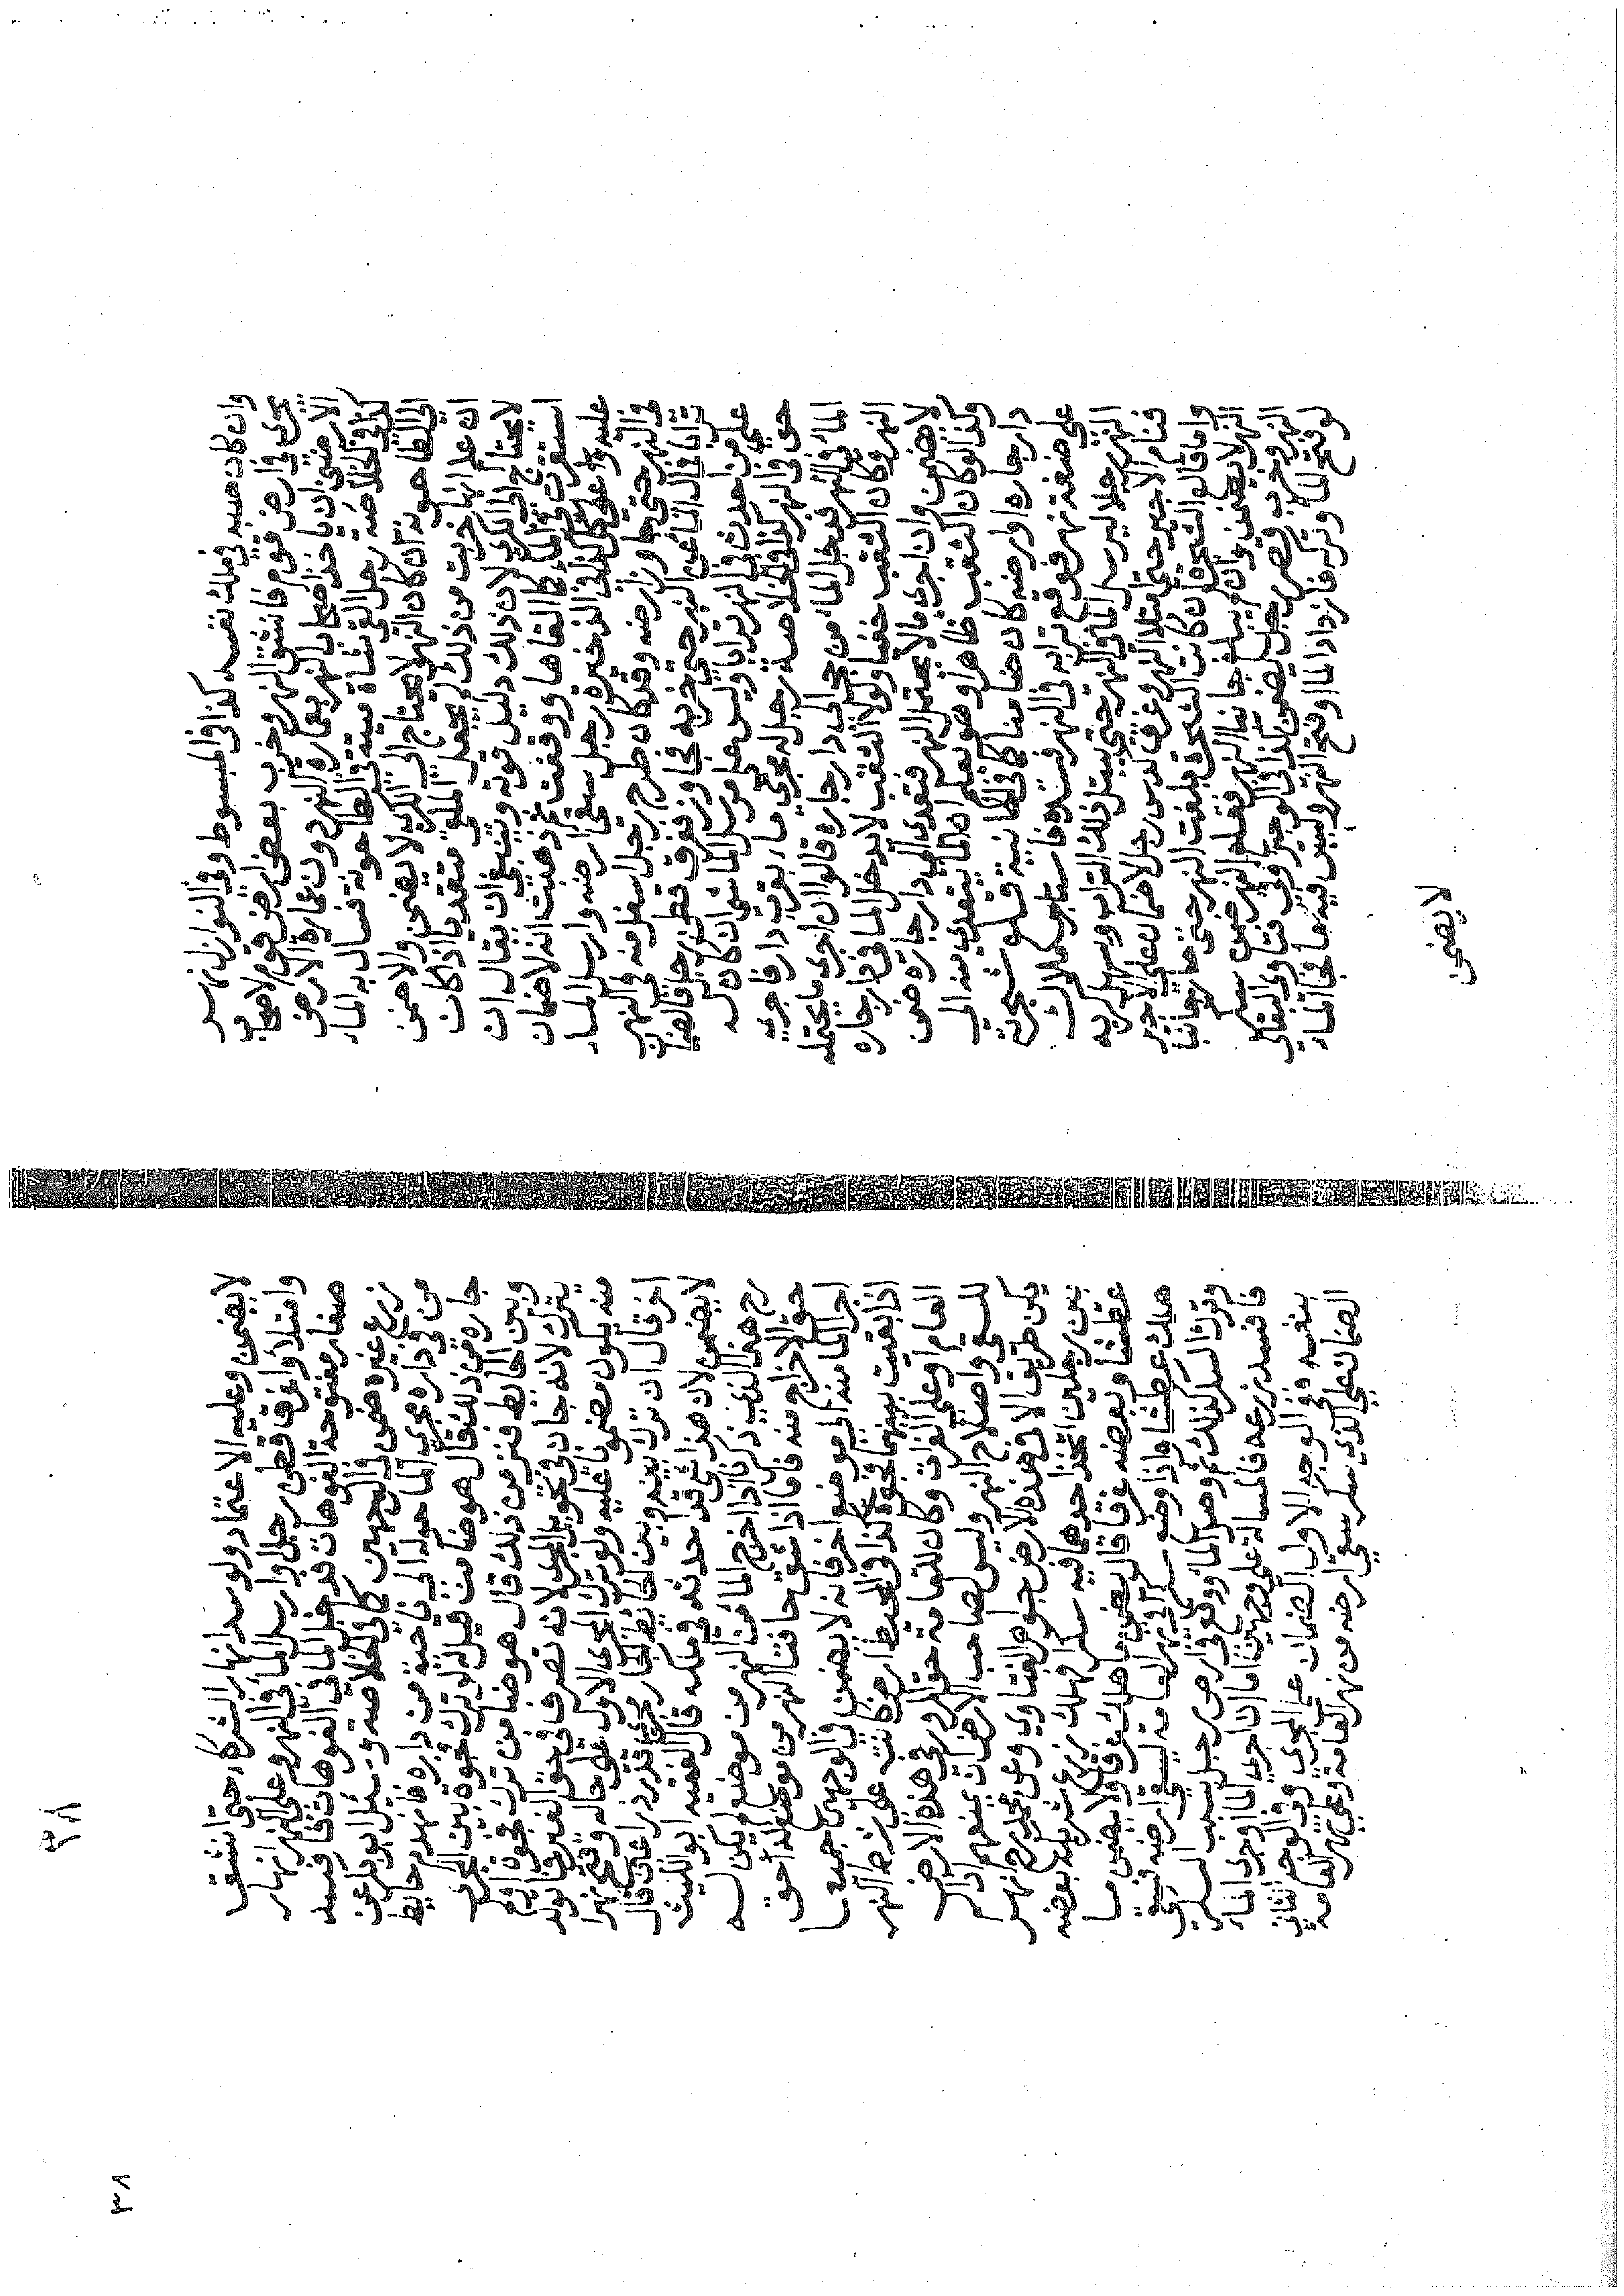 وان كان صبه في ملك نفسه كذا في المبسوط وفي النوازل نهر
يجري في ارض قوم فانشق النهر وخرب بعض ارض قوم لاصحاب
الارضين ان ياخذوا اصحاب النهر بعمارة النهر دون عمارة الارض
كذا في الخلاصة رجل القى شاة ميتة في الطاحونة فسال به الماء
الى الطاحونة ان كان النهر لا يحتاج الى الكري لا يضمن والا ضمن
ان علم انها خربت من ذلك يجعل الملقي متعديا اذ كان
لا يحتاج الى الكري لان ذلك دليل قوته وينبغي ان يقال ان
استقرت في الماء كما القاها ووقفت ثم ذهبت انه لا ضمان
عليه كذا في الذخيرة رجل سقى ارضه وارسل الماء
في النهر حتى جاوز ارضه وقد كان طرح رجل اسفل منه في النهر
ترابا فمال الماء عن النهر حتى خرب فغرق قطن رجل فالضمان
على من احدث في النهر ترابا وليس على مرسل الماء شي ان كان له
حق في النهر كذا في الخلاصة رجل له مجرى ماء بقرب دار فاجرى
الماء في النهر فدخل الماء من جحر الى دار جاره قالوا ان اجرى ما يحتمله
النهر وكان الثقب خفيا ولولا الثقب لا يدخل الماء في دار جاره
لا يضمن وان اجرى ما لا يحتمل النهر فتعدى الى دار جاره ضمن
وكذا لو كان الثقب ظاهرا وهو يعلم ان الماء يتعدى منه الى
دار جاره او ارضه كان ضامنا كذا في الخانية قلع شجرة
على ضفة نهر فوقع ترابه في النهر فسده فاستاجر مالك
النهر رجلا ليرسل الماء في النهر حتى يبتل ذلك التراب ويسهل كريه
فنام الاجير حتى امتلا النهر وغرق كدس رجل لا ضمان على الاجير
واما قالع الشجرة ان كانت الشجرة بلغت النهر حتى صار جانبا
النهر لا يضمن وان لم يبلغ جانبا النهر ضمن سكر
النهر وخرب قصر رجل يضمن كذا في الوجيز وفي فتاوى البقالي
لو فتح الماء وتركه فازداد الماء او فتح النهر وليس فيه ماء فجا الماء
لا يضمن
٣٨
لا يضمن وعليه الاعتماد ولو سد انهار الشركاء حتى انشق
وامتلا واغرق قطن رجل او ارسل الماء في النهر وعلى النهر انهار
صغار مفتوحة الفوهات فدخل الماء في الفوهات فافسد
زرع غيره ضمن في الوجهين كذا في الخلاصة وسئل ابو بكر عن
من في داره مجرى الماء حوله الى ناحية من داره فانهدم حايط
جاره من ذلك قال هو ضامن قيل له لو ترك فجوة بين المجرى
وبين الحايط فنز من ذلك قال هو ضامن ترك فجوة او لم
يترك لانه جان في تحويل المجرى لانه تصرف في حق الغير فما تولد
منه يكون مضمونا عليه ولو ترك المجرى الاول على حاله وفتح نهرا
اخر قال ان ترك بينه وبين الحايط الجار حريم قدر ذراعان قال
لا يضمن لان هذا شي قد احدثه في ملكه قال الفقيه ابو الليث
رح هذا الذي ذكرنا اذا اخرج الماء من النهر من موضع لم يكن له
حق الاخراج منه فاما اذا شق حافتا النهر من موضع له حق
اجرا الماء منه الى موضع اخر فانه لا يضمن في الوجهين جميعا
اذا بقيت بينهما فجوة كذا في المحيط ارض كانت على شط النهر
العام او على الفرات وكان للعامة حق المرور في هذه الارض
للسقي واصلاح النهر وليس لصاحب الارض ان يمنعهم اذا لم
يكن طريق الا في هذه الارض جواهر الفتاوى وعن محمد رح نهر
بين رجلين اتخذ احدهما فيه سكرا فهلك زرع شريكه بعضه
عطشا وبعضه غرقا قال يضمن ما هلك غرقا ولا يضمن ما
هلك عطشا واذا وضع سكرا في نهر العامة ليسقي ارضه فسقى
وترك السكر كذلك وصد الماء ووقع في ارض رجل بسبب السكر
فافسد زرعه فالمسالة على وجهين اما ان اجرى الماء او جرى الماء
بنفسه وفي الوجه الاول الضمان على المجري وفي الوجه الثاني
الضمان على الذي سكر سقى ارضه من نهر العامة وعلى نهر العامة
٣٨